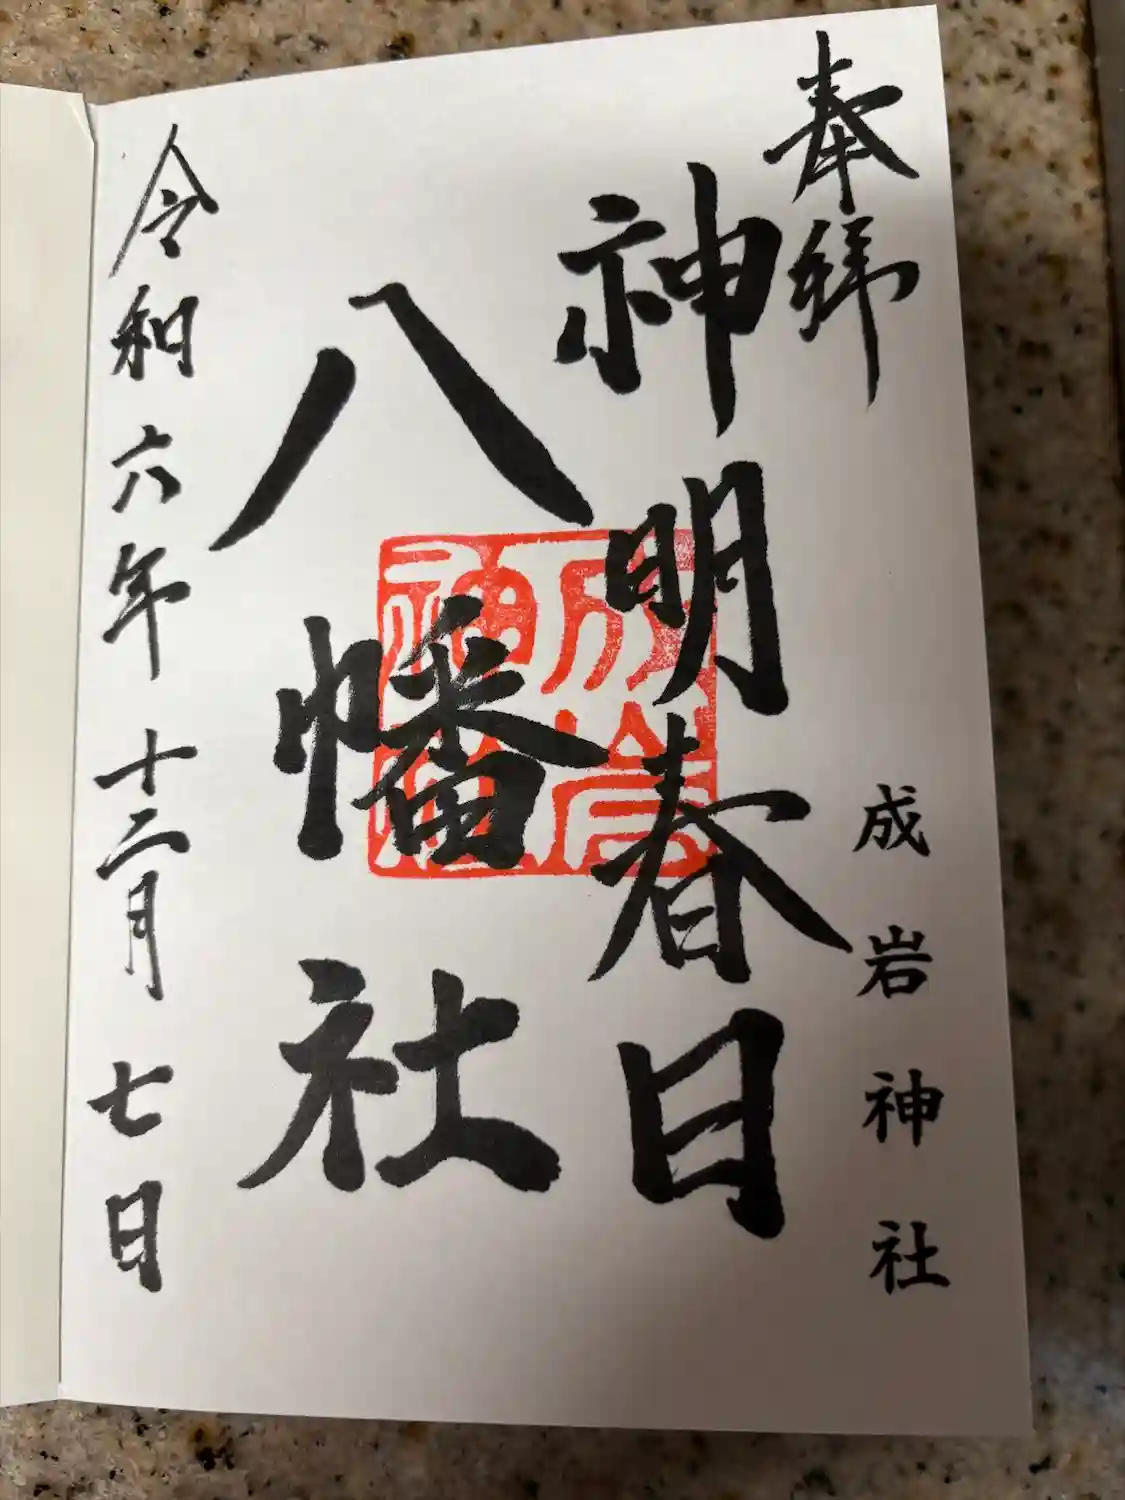 奉拝
成岩神社
神明春日
八幡社
成岩
神社
令和六年十二月七日